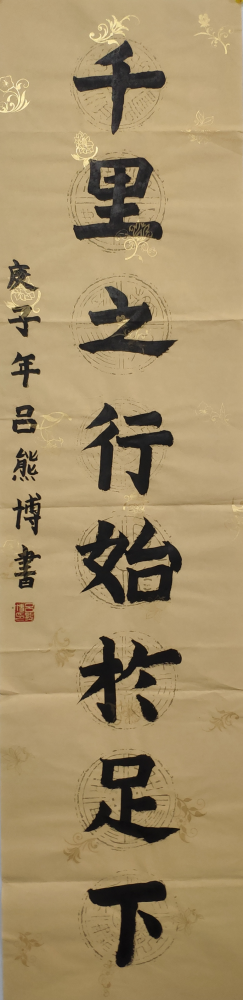 千里之行始於足下
庚子年吕熊博書